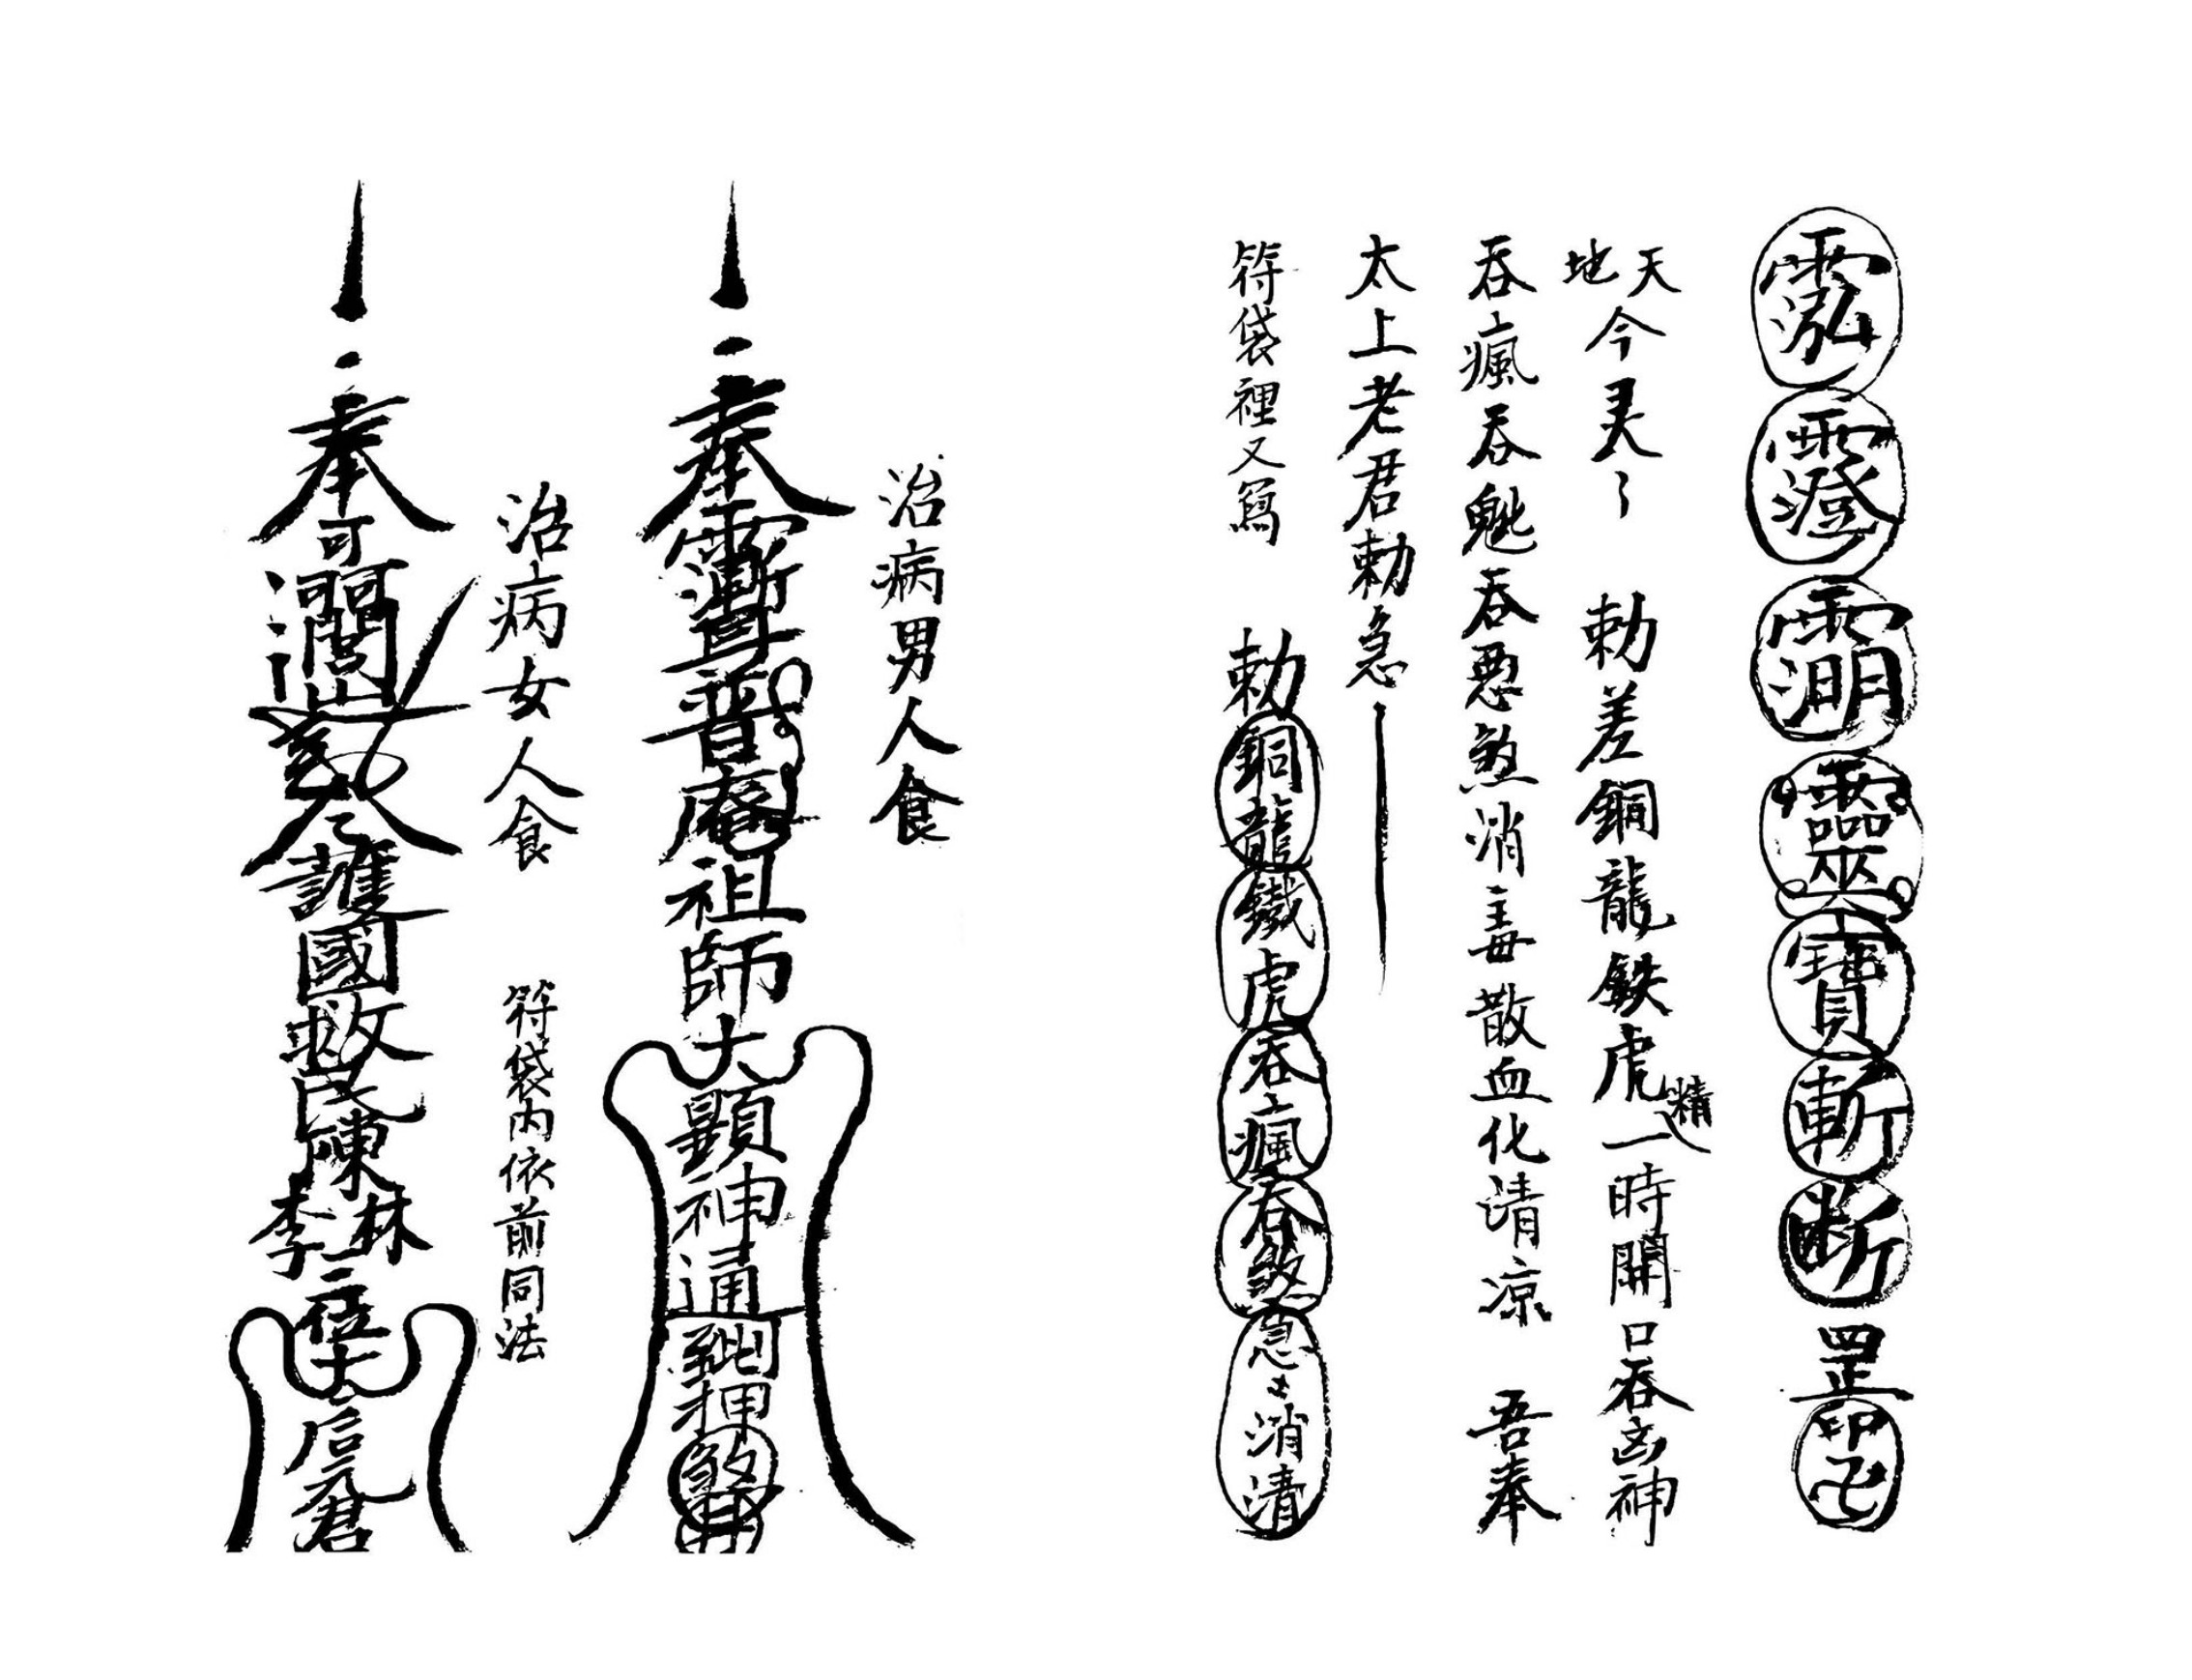 靈寶斬断罡印卍
天地今灵々 勅差銅龍鉄虎精一時開口吞凶神
吞瘋吞魈吞悪煞消毒散血化清凉 吾奉
太上老君勅急
符袋裡又寫 勅銅龍鐵虎吞瘋吞煞急々消清
治病男人食
奉普庵祖師大顯神通押煞
治病女人食 符袋内依前同法
奉護國救民陳林李三位大后元君